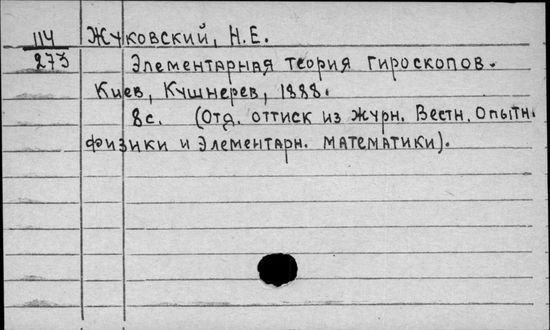 114 Жуковский, Н.Е.
273 Элементарная теория гироскопов.
Киев, Кушнерев, 1888.
8с. (Отд. оттиск из журн. Вестн. Опытн.
физики и элементарн. математики).